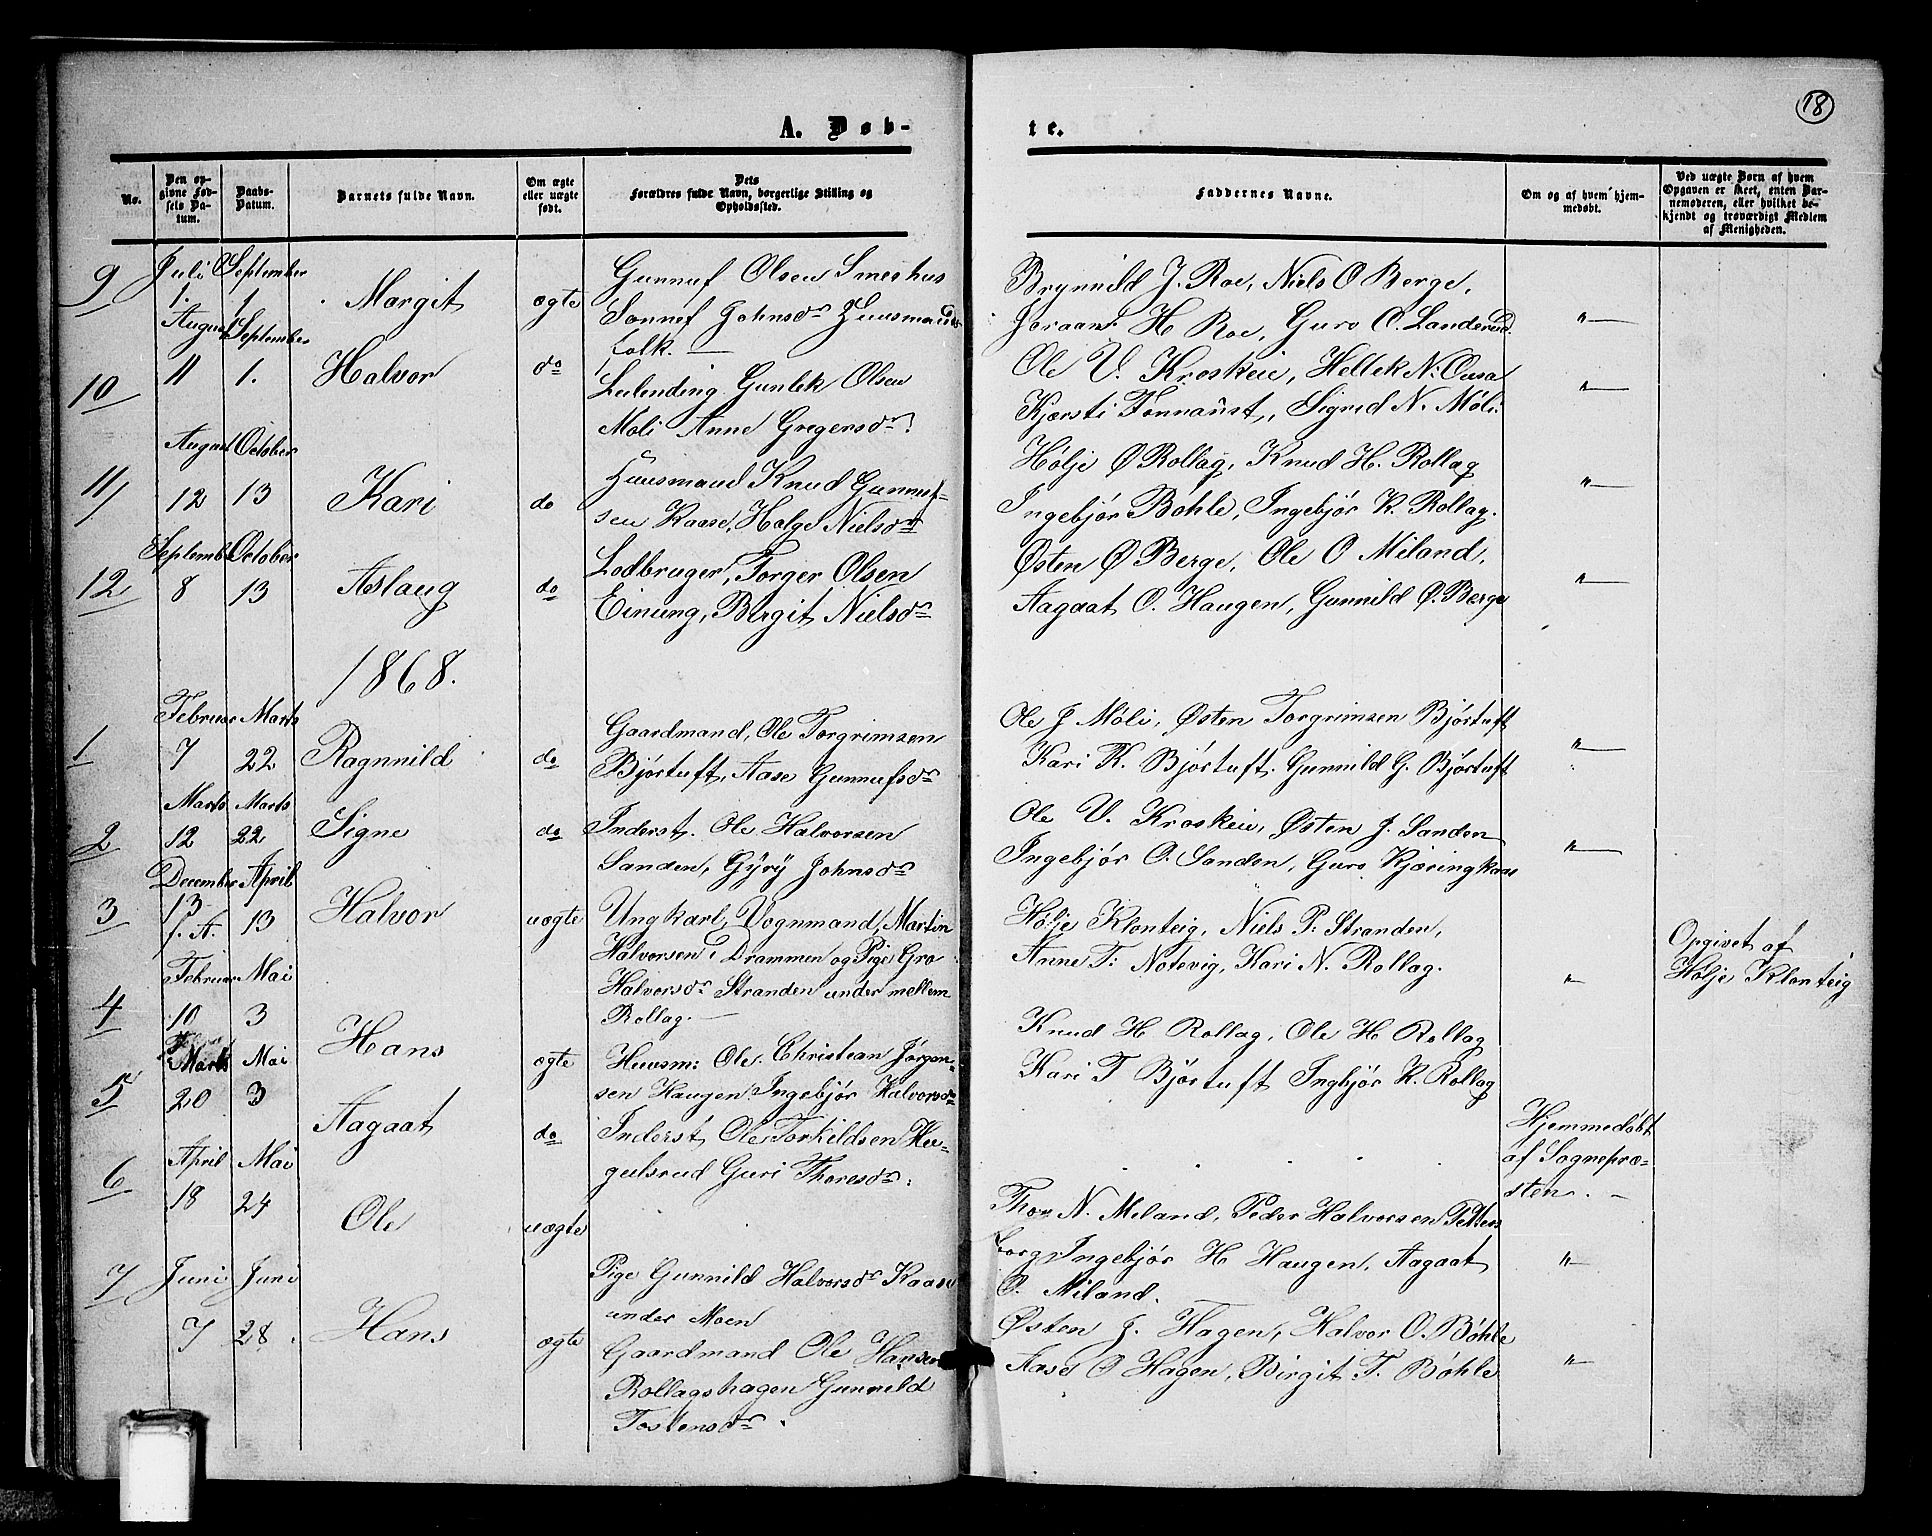 18
A. Døb-
te.
No.
Den op-
givne Fød-
sels Da-
tum.
Daabs-
Datum.
Barnets fulde Navn.
Om ægte
eller uægte
født.
Dets
Forældres fulde Navn, borgerlige Stilling og
Opholdssted.
Faddernes Navne.
Om og af hvem hjem-
medøbt.
Ved uægte Børn af hvem
Opgaven er skeet, enten Bar-
nemoderen, eller hvilket be-
kjendt og troværdigt Medlem
af Menigheden.
9 Juli 1. September 1. Margit ægte
Gunnuf Olsen Smeshus
Sønnef Johnsdr Huusmands
folk. —
Brynnild J. Roe, Niels O Berge,
Joraan H Roe, Guro O. Landerud. "—
10 August 11 September 1. Halvor do
Leilending Gunlek Olsen
Moli Anne Gregersdr.
Ole V. Kroskeie, Hellek N. Ousa
Kjersti Fonnaust, Sigrid N. Møli. "—
11 August 12 October 13 Kari do
Huusmand Knud Gunnuf-
sen Kaase, Helge Nielsdr
Hølje Ø Rollag, Knud H. Rollag
Ingebjør Bøhle, Ingebjør K. Rollag. "—
12 September 8 October 13 Aslaug do
Lodbruger, Torger Olsen
Einung, Birgit Nielsdr
Østen Ø Berge, Ole O Miland,
Aagaat O. Haugen, Gunnild Ø. Berge "—
1868.
1 Februar 7 Marts 22 Ragnnild do
Gaardmand, Ole Torgrimsen
Bjørtuft, Aase Gunnufsdr
Ole J Møli, Østen Torgrimsen Bjørtuft
Kari K. Bjørtuft. Gunnild G. Bjørtuft "—
2 Marts 12 Marts 22 Signe do
Inderst. Ole Halvorsen
Sanden, Gyry Johnsdr
Ole V. Kroskeie, Østen J. Sanden
Ingebjør O. Sanden, Guro Kjæringkaas "—
3 December 13 f. A. April 13 Halvor uægte
Ungkarl, Vognmand, Martin
Halvorsen i Drammen og Pige Gro
Halvorsdr Stranden under mellem
Rollag. —
Hølje Klonteig, Niels P. Stranden,
Anne T: Notevig, Kari N. Rollag. "
Opgivet af
Hølje Klonteig
4 Februar 10 Mai 3 Hans ægte
Huusm: Ole Christean Jørgen-
sen Haugen Ingebjør Halvorsdr
Knud H Rollag, Ole H Rollag
Kari T Bjørtuft Ingbjør K. Rollag
5 Marts 20 Mai 3 Aagaat do
Inderst, Ole Torkildsen He-
gulsrud Guri Thoresdr.
Hjemmedøbt
af Sognepræ-
sten. —
6 April 18 Mai 24 Ole uægte
Pige Gunnild Halvorsdr Kaase
under Moen
Thor N. Meland, Peder Halvorsen Petters
borg, Ingebjør H Haugen, Aagaat
O. Miland. "
7 Juni 7 Juni 28. Hans ægte
Gaardmand Ole Hansen
Rollagshagen Gunnild
Tostensdr.
Østen J. Hagen, Halvor O. Bøhle
Aase O Hagen, Birgit T. Bøhle "